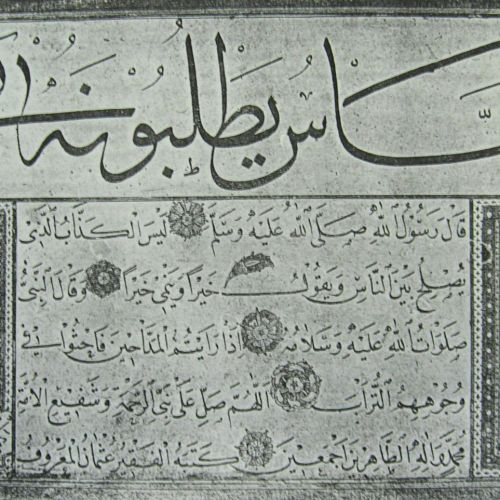 ناسُ يَطْلُبُونَهُ
قَالَ رَسُولُ اللهِ صَلَّى اللهُ عَلَيْهِ وَسَلَّمَ لَيْسَ الكَذَّابُ الَّذِي
يُصْلِحُ بَيْنَ النَّاسِ وَيَقُولُ خَيْرًا وَيَنْمِي خَيْرًا وَقَالَ النَّبِيُّ
صَلَوَاتُ اللهِ عَلَيْهِ وَسَلَامُهُ اِذَا رَاَيْتُمُ الْمَدَّاحِينَ فَاحْثُوا فِي
وُجُوهِهِمُ التُّرَابَ اَللّٰهُمَّ صَلِّ عَلَى نَبِيِّ الرَّحْمَةِ وَشَفِيعِ الْاُمَّةِ
مُحَمَّدٍ وَاٰلِهِ الطَّاهِرِينَ اَجْمَعِينَ كَتَبَهُ الْفَقِيرُ عُثْمَانُ الْمَعْرُوفُ